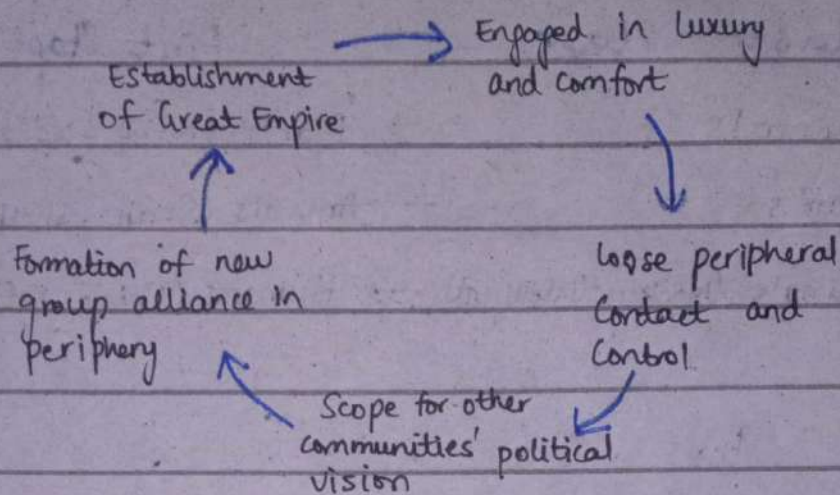 Establishment
of Great Empire
Engaged in luxury
and comfort
Loose peripheral
Contact and
Control
Scope for other
communities' political
vision
Formation of new
group alliance in
periphery